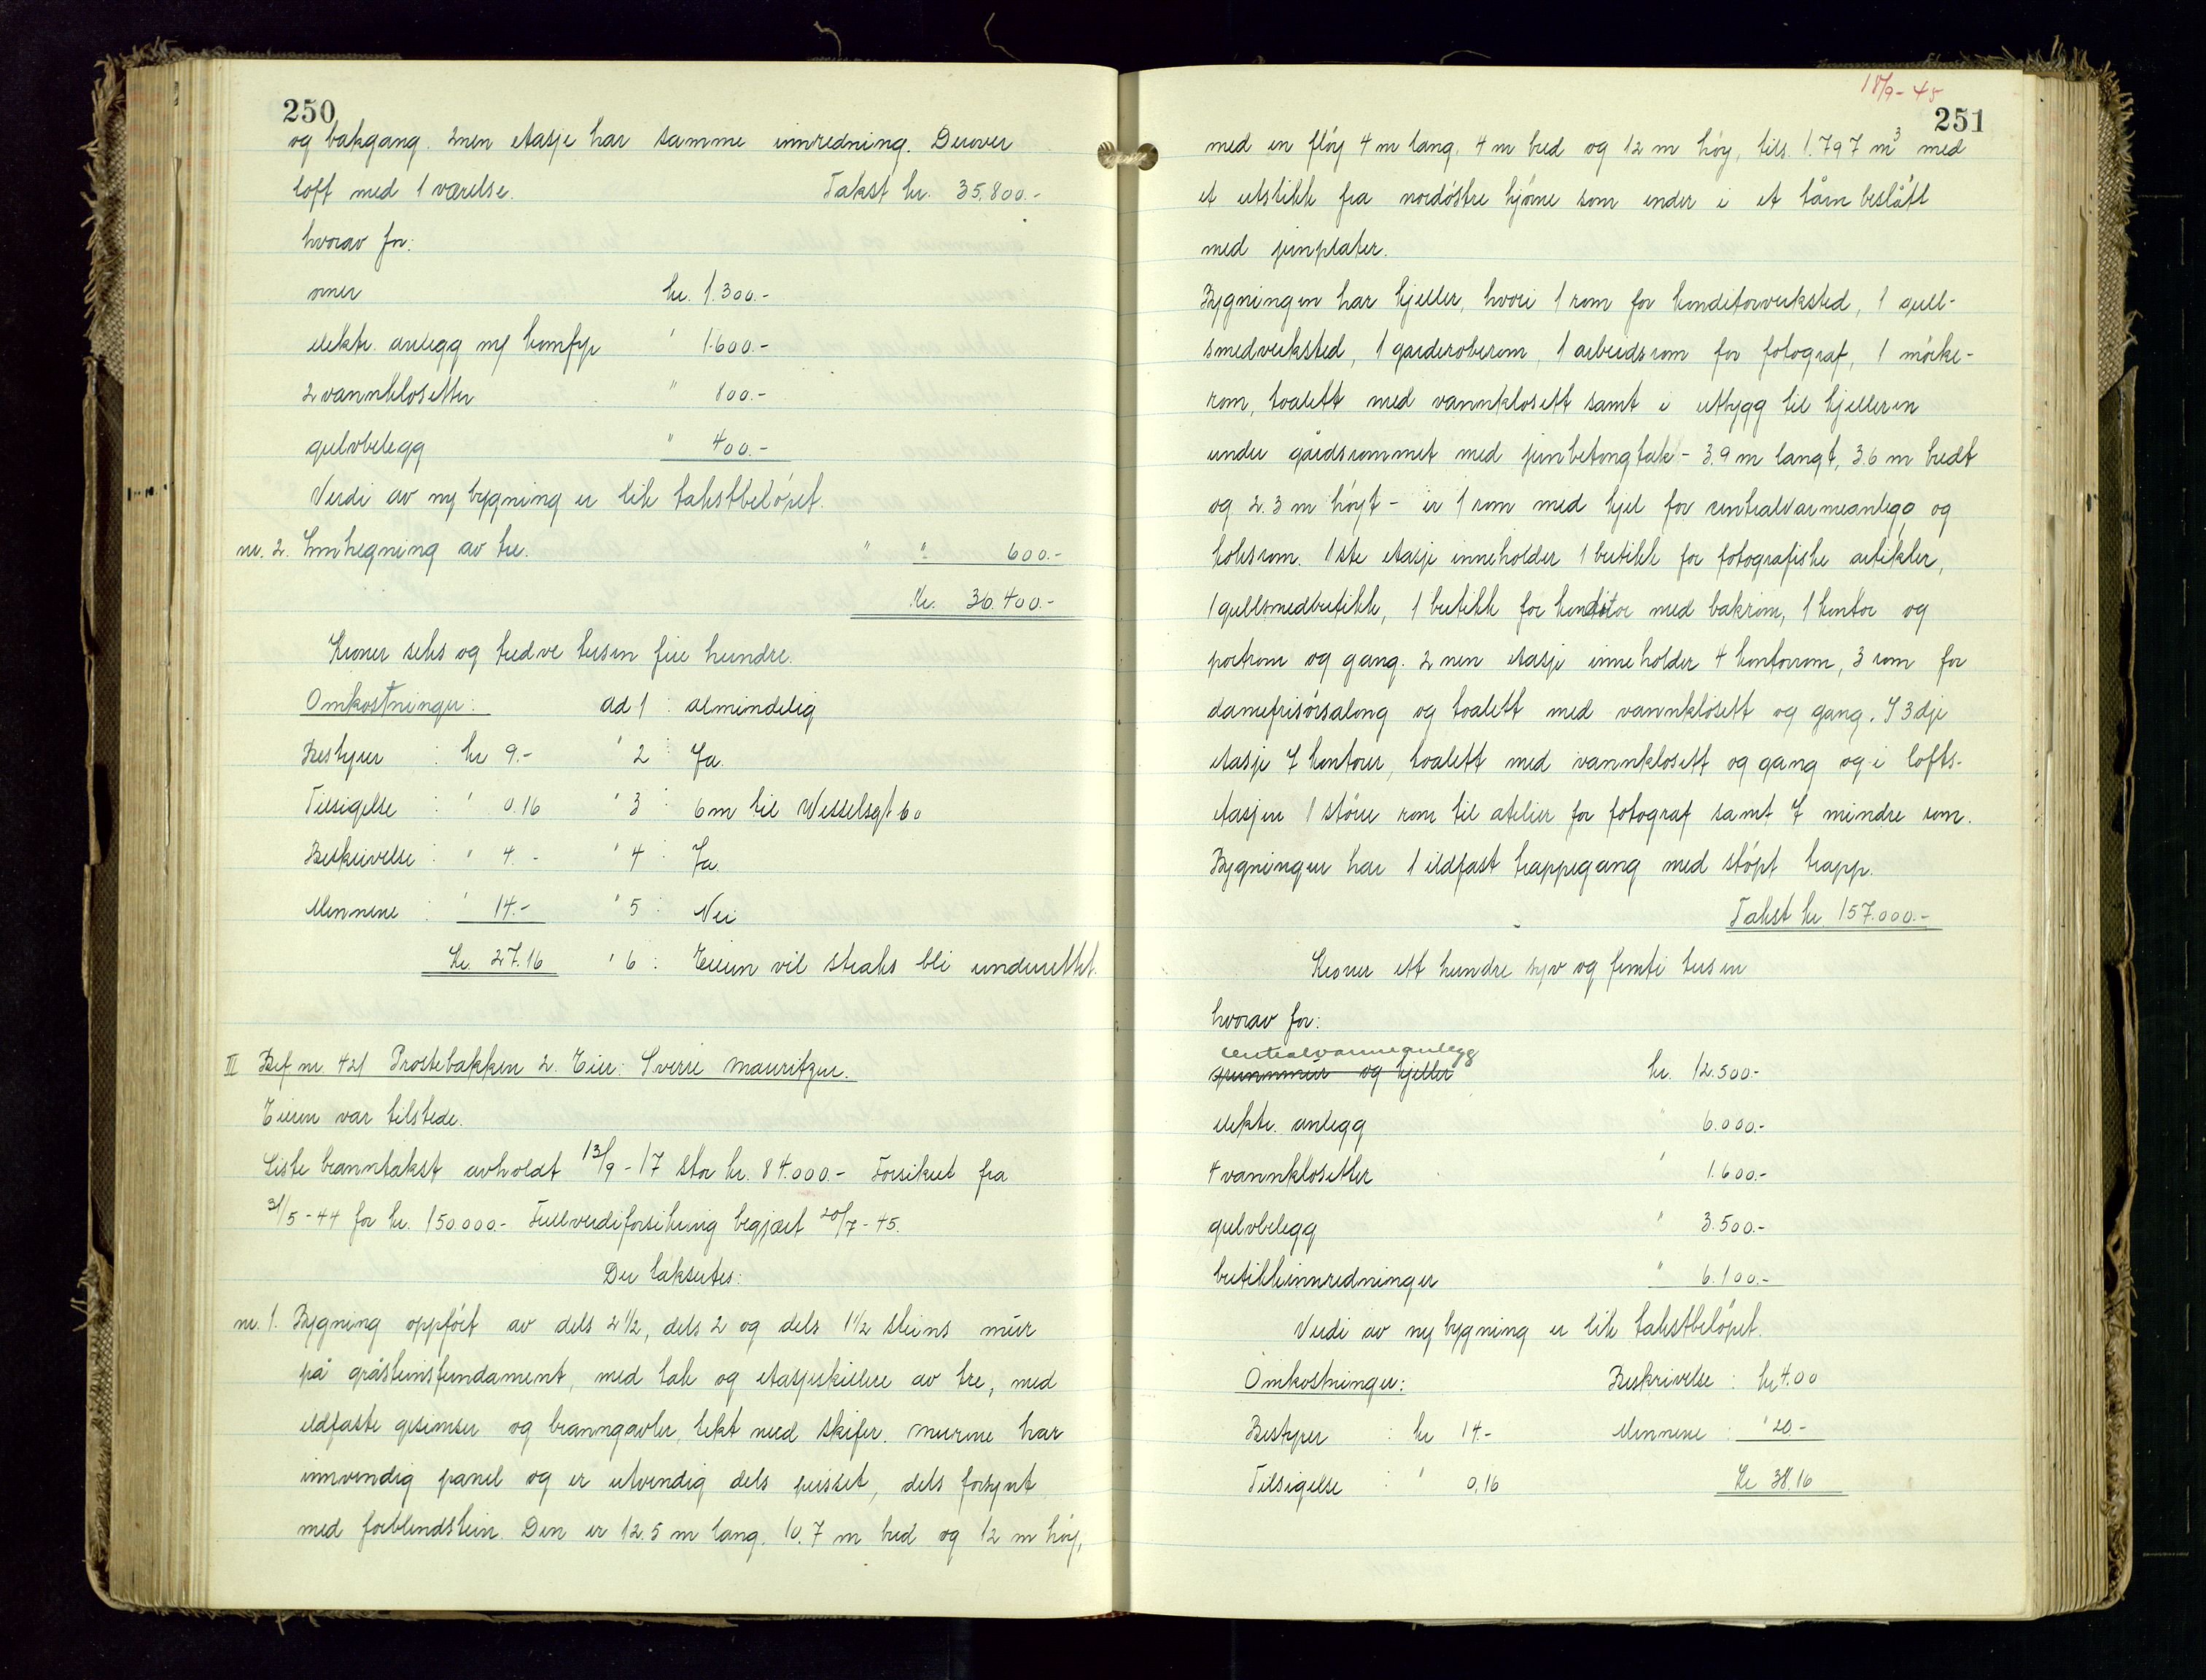 250
og bakgang. 2nen etasje har samme innredning. Derover
loft med 1 værelse. Takst kr. 35.800.-
hvorav for:
ovner kr. 1.300.-
elektr. anlegg m/ komfyr " 1.600.-
2 vannklosetter " 800.-
gulvbelegg " 400.-
Verdi av ny bygning er lik takstbeløpet.
nr. 2. Innhegning av tre. " " 600.-
Kr. 36.400.-
Kroner seks og tredve tusen fire hundre.
Omkostninger: ad 1 : almindelig
Bestyrer : kr 9.- " 2 : Ja.
Tilsigelse : " 0.16 " 3 : 6m til Wesselsgt. 60
Beskrivelse : " 4.- " 4 : Ja.
Mennene : " 14.- " 5 : Nei
Kr. 27.16 " 6 : Eieren vil straks bli underrettet.
III Bef. nr. 421 Prostebakken 2. Eier: Sverre Mauritzen.
Eieren var tilstede.
Siste branntakst avholdt 13/9-17 stor kr. 84.000.- Forsikret fra
31/5-44 for kr. 150.000.- Fullverdiforsikring begjært 20/7-45.
Der takseres:
nr. 1. Bygning oppført av dels 2 1/2, dels 2 og dels 1 1/2 steins mur
på gråsteinsfundament, med tak og etasjeskillere av tre, med
ildfaste gesimser og branngavler, tekt med skifer. Murene har
innvendig panel og er utvendig dels pusset, dels forsynt
med forblendstein. Den er 12.5 m lang, 10.7 m bred og 12 m høy,
18/9-45
251
med en fløy 4 m lang, 4 m bred og 12 m høy, tils. 1.797 m3 med
et utstikk fra nordøstre hjørne som ender i et tårn beslått
med jernplater.
Bygningen har kjeller, hvori 1 rom for konditorverksted, 1 gull-
smedverksted, 1 garderoberom, 1 arbeidsrom for fotograf, 1 mørke-
rom, toalett med vannklosett samt i utbygg til kjelleren
under gårdsrommet med jernbetongtak - 3.9 m langt, 3.6 m bredt
og 2.3 m høyt - er 1 rom med kjel for sentralvarmeanlegg og
koksrom. 1ste etasje inneholder 1 butikk for fotografiske artikler,
1 gullsmedbutikk, 1 butikk for konditor med bakrom, 1 kontor og
portrom og gang. 2nen etasje inneholder 4 kontorrom, 3 rom for
damefrisørsalong og toalett med vannklosett og gang. I 3dje
etasje 7 kontorer, toalett med vannklosett og gang og i lofts-
etasjen 1 større rom til atelier for fotograf samt 7 mindre rom.
Bygningen har 1 ildfast trappegang med støpt trapp.
Takst kr. 157.000.-
Kroner ett hundre syv og femti tusen
hvorav for:
sentralvarmeanlegg
grunnmur og kjeller kr. 12.500.-
elektr. anlegg " 6.000.-
4 vannklosetter " 1.600.-
gulvbelegg " 3.500.-
butikkinnredninger " 6.100.-
Verdi av ny bygning er lik takstbeløpet.
Omkostninger: Beskrivelse : kr 4.00
Bestyrer : kr 14.- Mennene : " 20.-
Tilsigelse : " 0,16 Kr 38.16